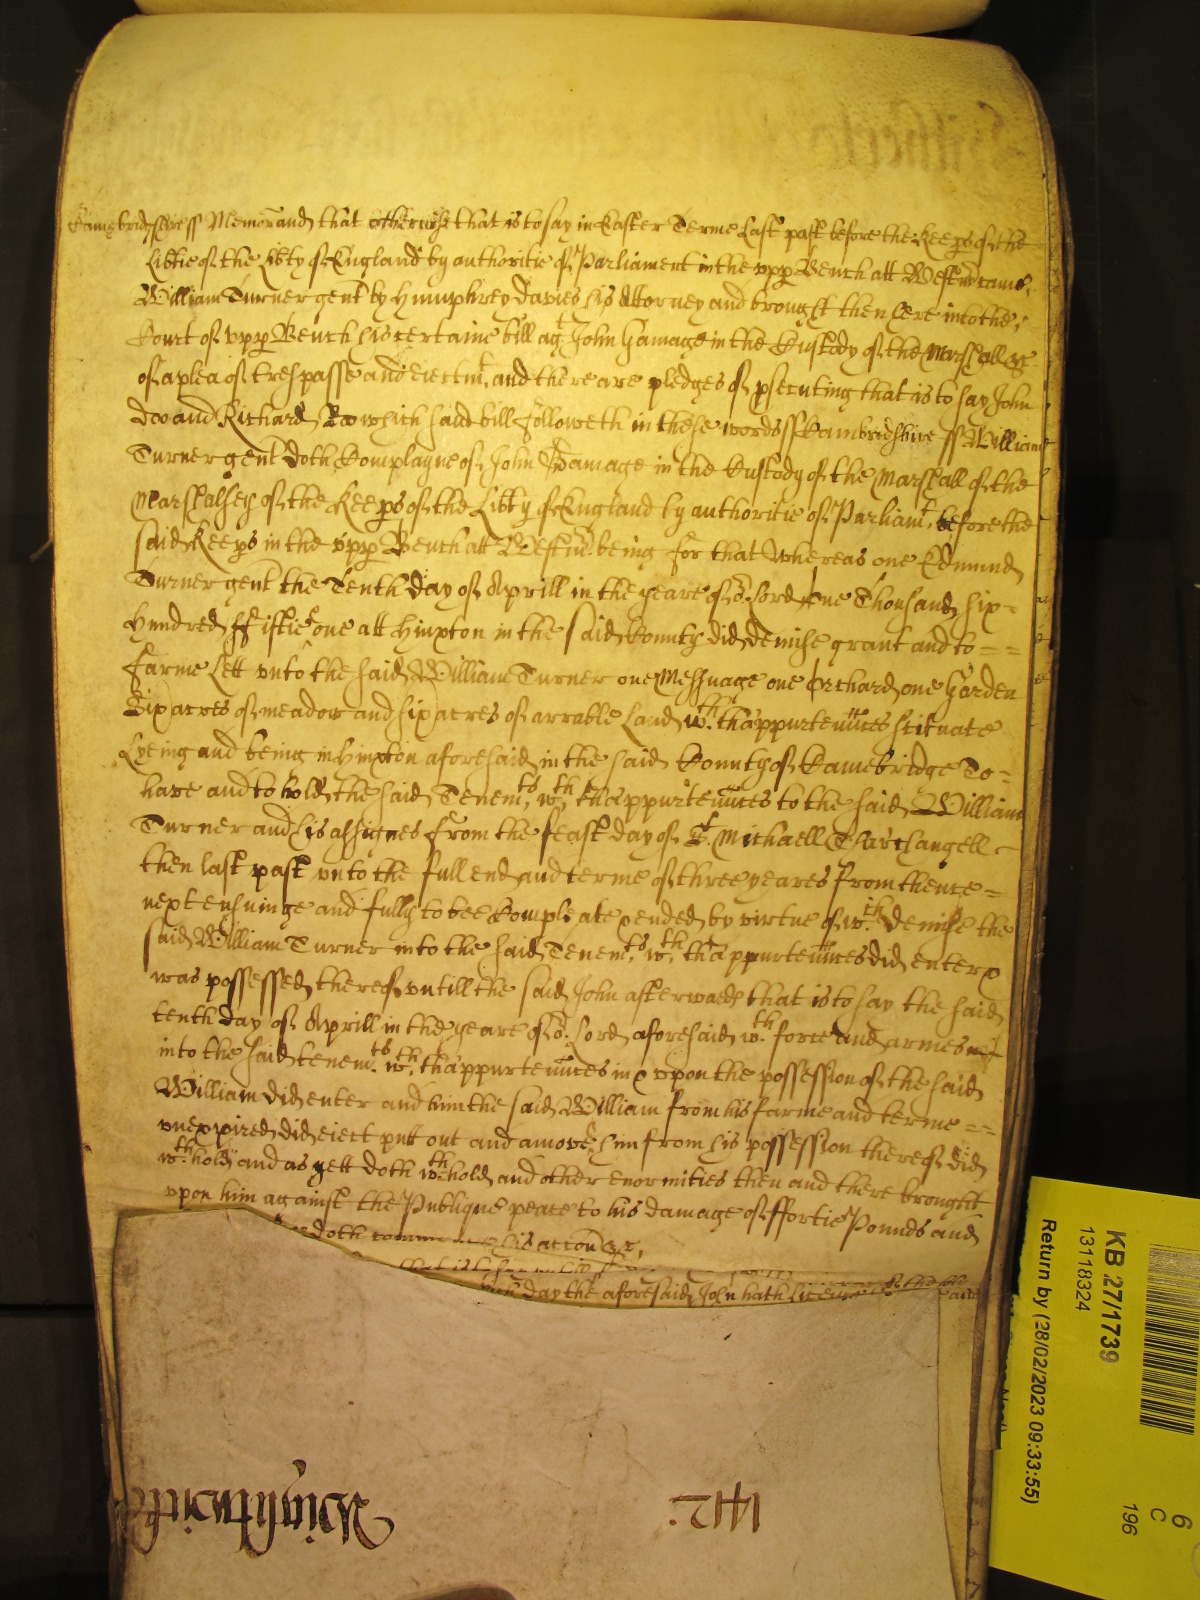 Cambridgshire ss Memorand that otherwise that is to say in Easter Terme Last past before the Keeps of the
Libtie of the Libty of England by authoritie of Parliament in the upp Bench att Westm came
William Turner gent by Humphrey Davies his Attorney and brought then here into the
Court of upp Bench his certaine bill agt John Gamage in the Custody of the Marshall &c
of a plea of trespasse and eiectmt, and there are pledges of psecuting that is to say John
Doo and Richard Roo which said bill followeth in these words ss Cambridshire ss William
Turner gent doth Complayne of John Gamage in the Custody of the Marshall of the
Marshalsey of the Keeps of the Libty of England by authoritie of Parliamt, before the
said Keeps in the upp Bench att Westm being for that whereas one Edmund
Turner gent the Tenth day of Aprill in the yeare of or Lord one Thousand Six =
Hundred ffiftie one att Hinxton in the said County did demise grant and to = =
farme Lett unto the said William Turner one Messuage one Orchard one Garden
Six acres of meadow and six acres of arrable Land wth thappurtennces scituate
Lyeing and being in Hinxton aforesaid in the said County of Cambridge To =
have and to hold the said Tenemts wth thappurtennces to the said William
Turner and his assignes from the feast day of St Michaell Tharchangell
then last past unto the full end and terme of three yeares from thence =
next ensuinge and fully to bee Compleate & ended by virtue of wch demise the
said William Turner into the said Tenemts wth thappurtennces did enter &
was possessed thereof untill the said John afterwards that is to say the said
tenth day of Aprill in the yeare of or Lord aforesaid wth force and armes
into the said tenemts wth thappurtennces in & upon the possession of the said
William did enter and him the said William from his farme and terme = =
unexpired did eiect putt out and amove him from his possession thereof did
wthhold and as yett doth wthhold and other enormities then and there brought
upon him against the Publique peace to his damage of ffortie Pounds and
doth his accon &c,
that is
day the aforesaid John hath
Wightwicke
1412.
KB 27/1739
13118324
Return by (28/02/2023 09:33:55)
6
C
196